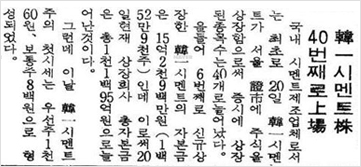 韓一시멘트株
40번째로上場
국내 시멘트제조업체로서
는 최초로 20일 韓一시멘
트가 서울 證市에 주식을
상장함으로써 증시에 상장
된종목수는40개로늘어났다.
올들어 6번째로 신규상
장한 韓一시멘트의 자본금
은 15억2천9백만원(1백
52만9천주)인데 이로써20
일현재 상장회사 총자본금
은 총1천1백95억원으로늘
어난것이다.
그런데 이날 韓一시멘트
주의 첫시세는 우선주1천
60원、보통주8백원으로 형
성되었다.